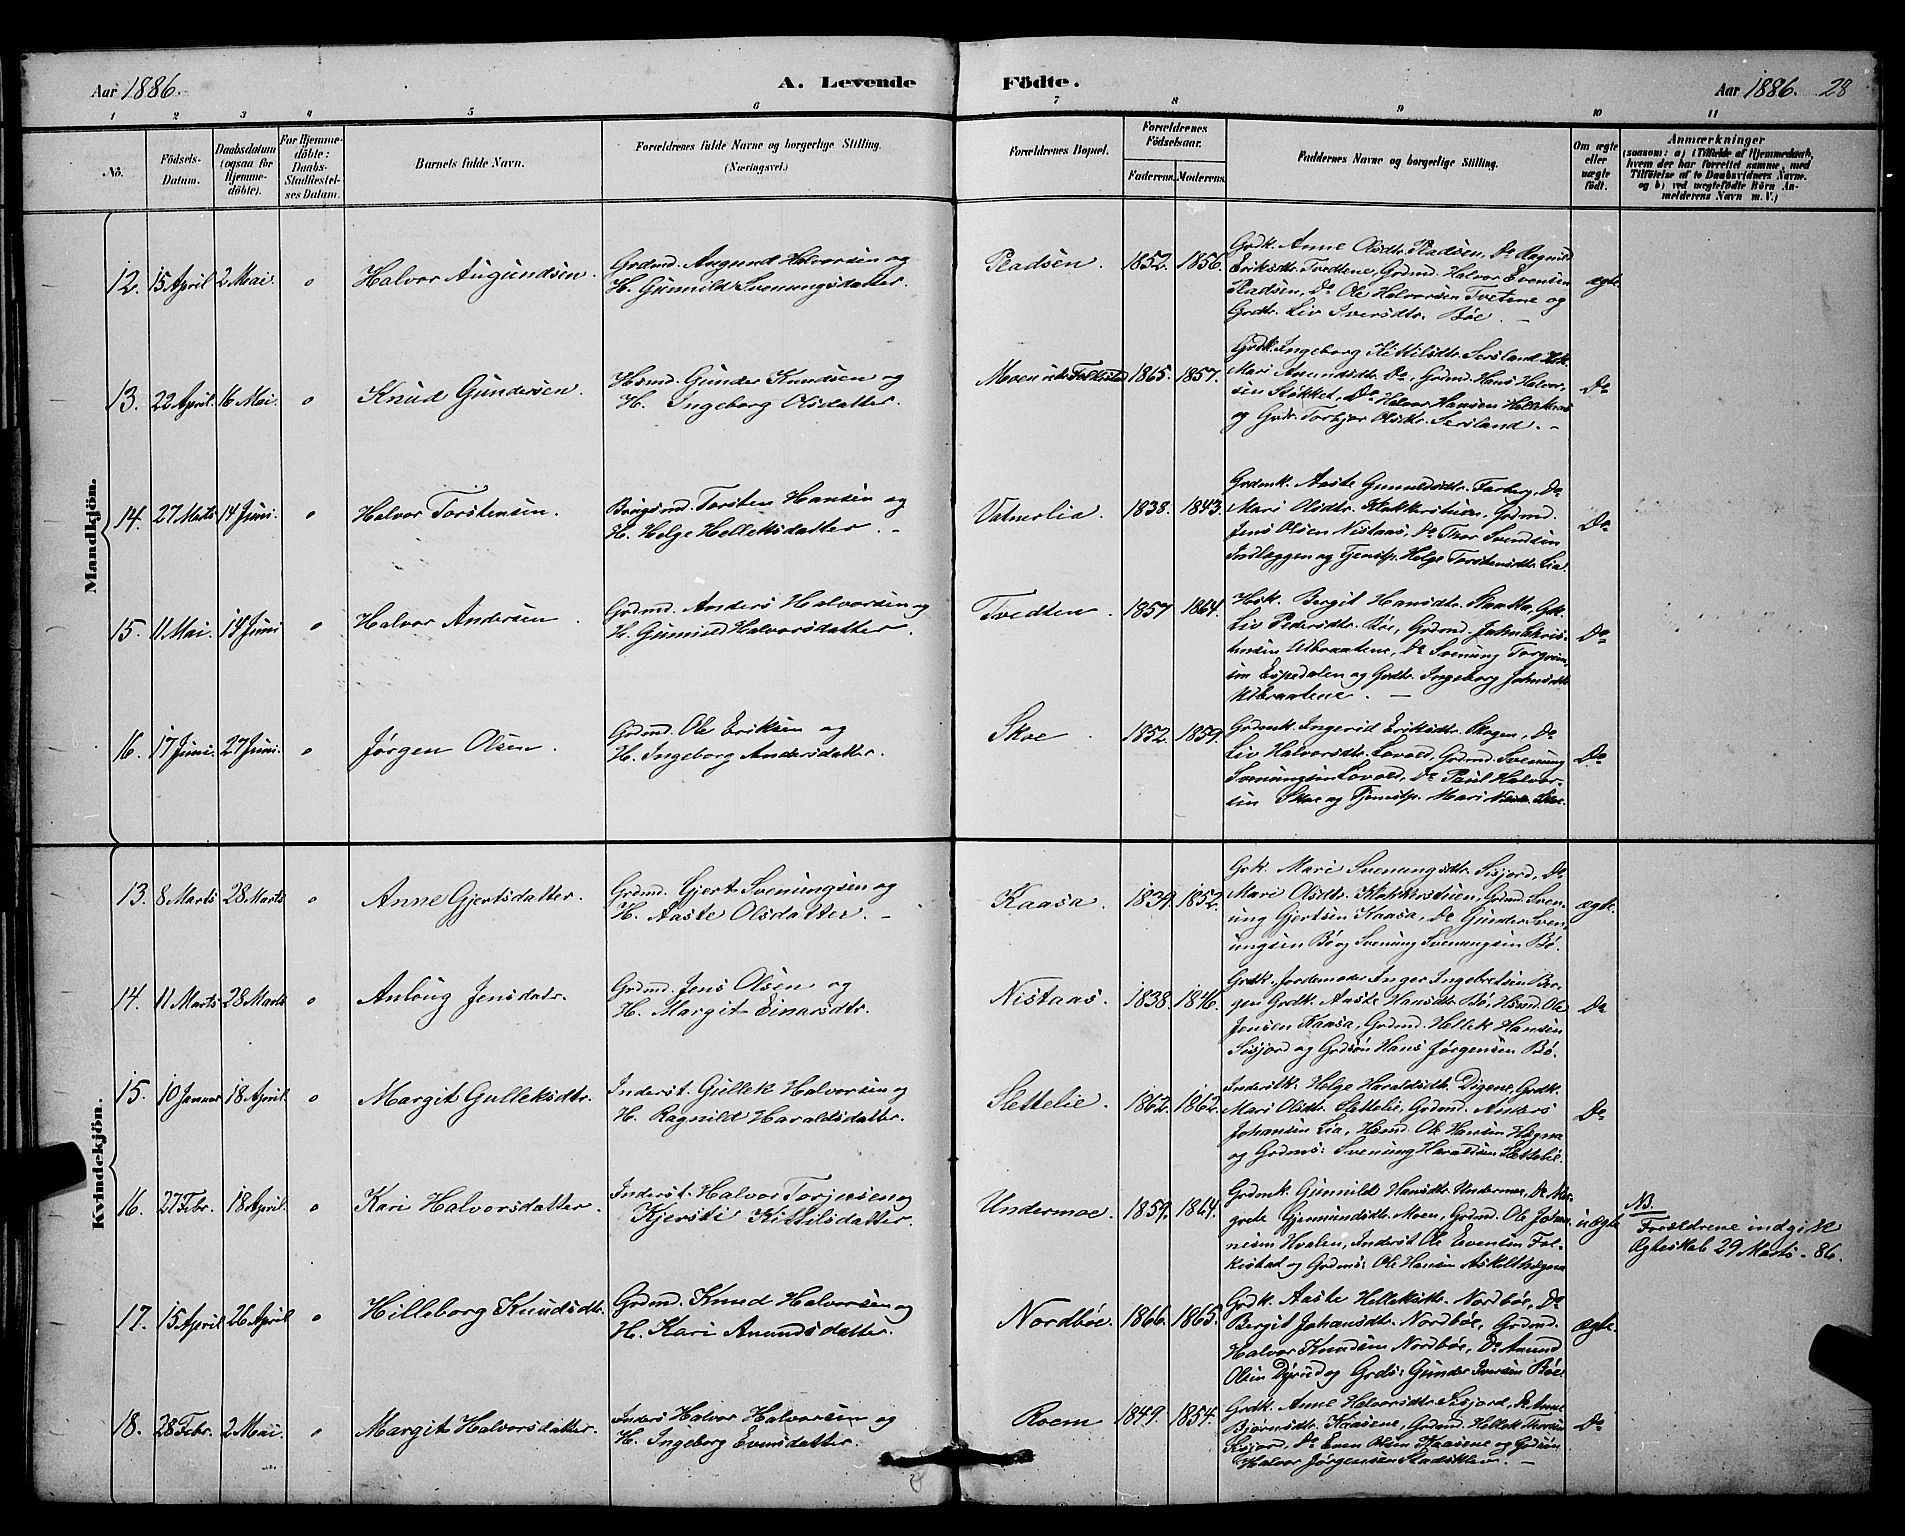 Aar 1886. A. Levende Födte. Aar 1886. 28
1 2 3 4 5 6 7 8 9 10 11
No.
Födsels-
Datum.
Daabsdatum
(ogsaa for
Hjemme-
döbte).
For Hjemme-
döbte:
Daabs-
Stadfæstel-
ses Datum.
Barnets fulde Navn.
Forældrenes fulde Navne og borgerlige Stilling.
(Næringsvei.)
Forældrenes Bopæl.
Forældrenes
Födselsaar.
Faderens. Moderens.
Faddernes Navne og borgerlige Stilling.
Om ægte
eller
uægte
födt.
Anmærkninger
(saasom: a) i Tilfælde af Hjemmedaab,
hvem der har forrettet samme, med
Tilföielse af to Daabsvidners Navne.
og b) ved uægtefödte Börn An-
melderens Navn m. V.)
Mandkjön.
12. 15 April 2 Mai. o Halvor Augundsen.
Grdmd. Augund Halvorsen og
H. Gunnild Svenungsdatter.
Pladsen. 1852. 1856.
Grdk. Anne Olsdtr. Pladsen, Do Ragnild
Eriksdtr. Tvedtene, Grdmd. Halvor Evensen
Pladsen, Do Ole Halvorsen Tvetene og
Grdtr. Liv Iversdtr. Bøe. –
ægte
13. 22 April. 16 Mai. o Knud Gundersen.
Hsmd. Gunder Knudsen og
H. Ingeborg Olsdatter.
Moen 1865. 1857.
Grdk. Ingeborg Kittilsdtr. Sersland
Mari Amundsdtr. Do, Grdmd. Hans Halvor-
sen Stokket, Do Halvor Hansen
og Grdtr. Torbjør Olsdtr. Sersland. –
Do
14. 27 Marts 14 Juni. o Halvor Torstensen.
Torsten Hansen og
H. Helge Helleksdatter. –
Vatnerlia. 1838. 1843.
Grdmk. Aaste Forberg, Do
Mari Olsdtr. Klokkerstuen, Grdmd.
Jens Olsen Nistaas, Do Thor Svendsen
Indlæggen og Tjenstp. Helge Torstensdtr. Lia.
Do
15. 11 Mai. 14 Juni o Halvor Andersen.
Grdmd. Anders Halvorsen og
H. Gunnild Halvorsdatter.
Tvedten 1857 1864.
Hsk. Bergit Hansdtr. Grk.
Liv Pedersdtr. Bøe, Grdmd. John Chris-
tensen Ulbraatene, Do Svenung Torgrim-
sen Espedalen og Grdtr. Ingeborg Johnsdtr.
Ulbraatene. –
Do
16. 17 Juni. 27 Juni. o Jørgen Olsen.
Grdmd. Ole Eriksen og
H. Ingeborg Andersdatter.
Skoe 1852. 1859.
Grdmk. Ingerid Eriksdtr. Skogen, Do
Liv Halvorsdtr. Lovold, Grdmd. Svenung
Svenungsen Lovold, Do Paul Halvor-
sen Skoe og Tjenstp. Mari
Do
Kvindekjön.
13. 8 Marts 28 Marts o Anne Gjertsdatter.
Grdmd. Gjert Svenungsen og
H. Aaste Olsdatter. –
Kaasa. 1839. 1852.
Grk. Mari Svenungsdtr. Sisjord. Do
Mari Olsdtr. Klokkerstuen, Grdmd. Sven-
ung Gjertsen Kaasa, Do Gunder Sven-
ungsen Bø og Svenung Svenungsen Bø.
ægte.
14. 11 Marts 28 Marts o Anloug Jensdatr.
Grdmd. Jens Olsen og
H. Margit Einarsdtr.
Nistaas. 1838. 1846.
Grdk. Jordemoder Inger Ingebretsen Ber-
gen Grdk. Aaste Hansdtr. Bø, Hsmd. Ole
Jensen Kaasa, Grdmd. Hellek Hansen
Sisjord og Grdsøn Hans Jørgensen Bø.
Do
15. 10 Januar 18 April. o Margit Gulleksdtr.
Inderst. Gullek Halvorsen og
H. Ragnild Haraldsdatter.
Slettelie. 1862. 1862.
Inderstk. Helge Haraldsdtr. Digene, Grdk.
Mari Olsdtr. Slettelie, Grdmd. Anders
Johansen Lia, Hsmd. Ole Hansen Hægna
og Grdms: Svenung Haraldsen Slettelie.
Do
16. 27 Febr. 18 April. o Kari Halvorsdatter.
Inderst. Halvor Torjusen og
Kjersti Kittilsdatter.
Undermoe. 1859. 1864.
Grdmk. Gunnild Hansdtr. Undermoe, Do Mar-
grete Gjermundsdtr. Moen, Grdmd. Ole Johan-
nesen Hvalen, Inderst Ole Evensen Fol-
kestad og Grdms: Ole Hansen
uægte
NB.
Forældrene indgik
Ægteskab 29 Marts – 86.
17. 15 April 26 April o Hilleborg Knudsdtr.
Grdmd. Knud Halvorsen og
H. Kari Amundsdatter.
Nordbøe. 1866. 1865.
Grdk. Aaste Helleksdtr. Nordbøe, Do
Bergit Johansdtr. Nordbøe, Grdmd.
Halvor Knudsen Nordbøe, Do Amund
Olsen Dyrud og Grds: Gunder Iversen Bøe.
ægte.
18. 28 Febr. 2 Mai. o Margit Halvorsdatter.
Inders Halvor Halvorsen og
H. Ingeborg Evensdatter.
Roem 1849. 1854.
Grdk. Anne Halvorsdtr. Sisjord, Do Anne
Bjørnsdtr. Kaasene, Grdmd. Hellek
Sisjord. Do Even Olsen Kaasene og Grdsøn
Halvor Jørgensen –
Do